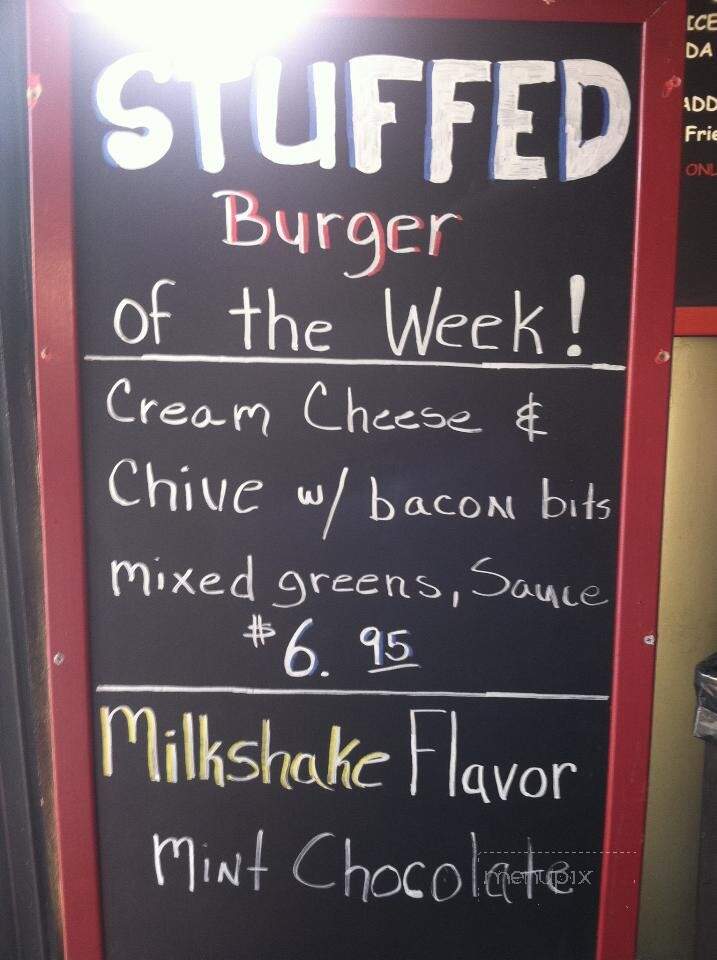 STUFFED
Burger
of the Week!
Cream Cheese &
Chive w/ bacon bits
mixed greens, Sauce
$6.95
Milkshake Flavor
Mint Chocolate
menupix
ICE
DA
ADD
Frie
ONL